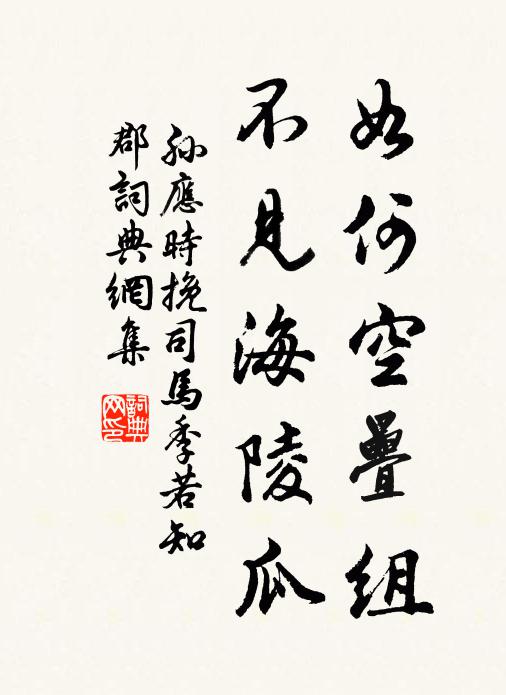 如何空疊組
不見海陵瓜
孫應時挽司馬季若知
郡詞典網集
詞典
网印